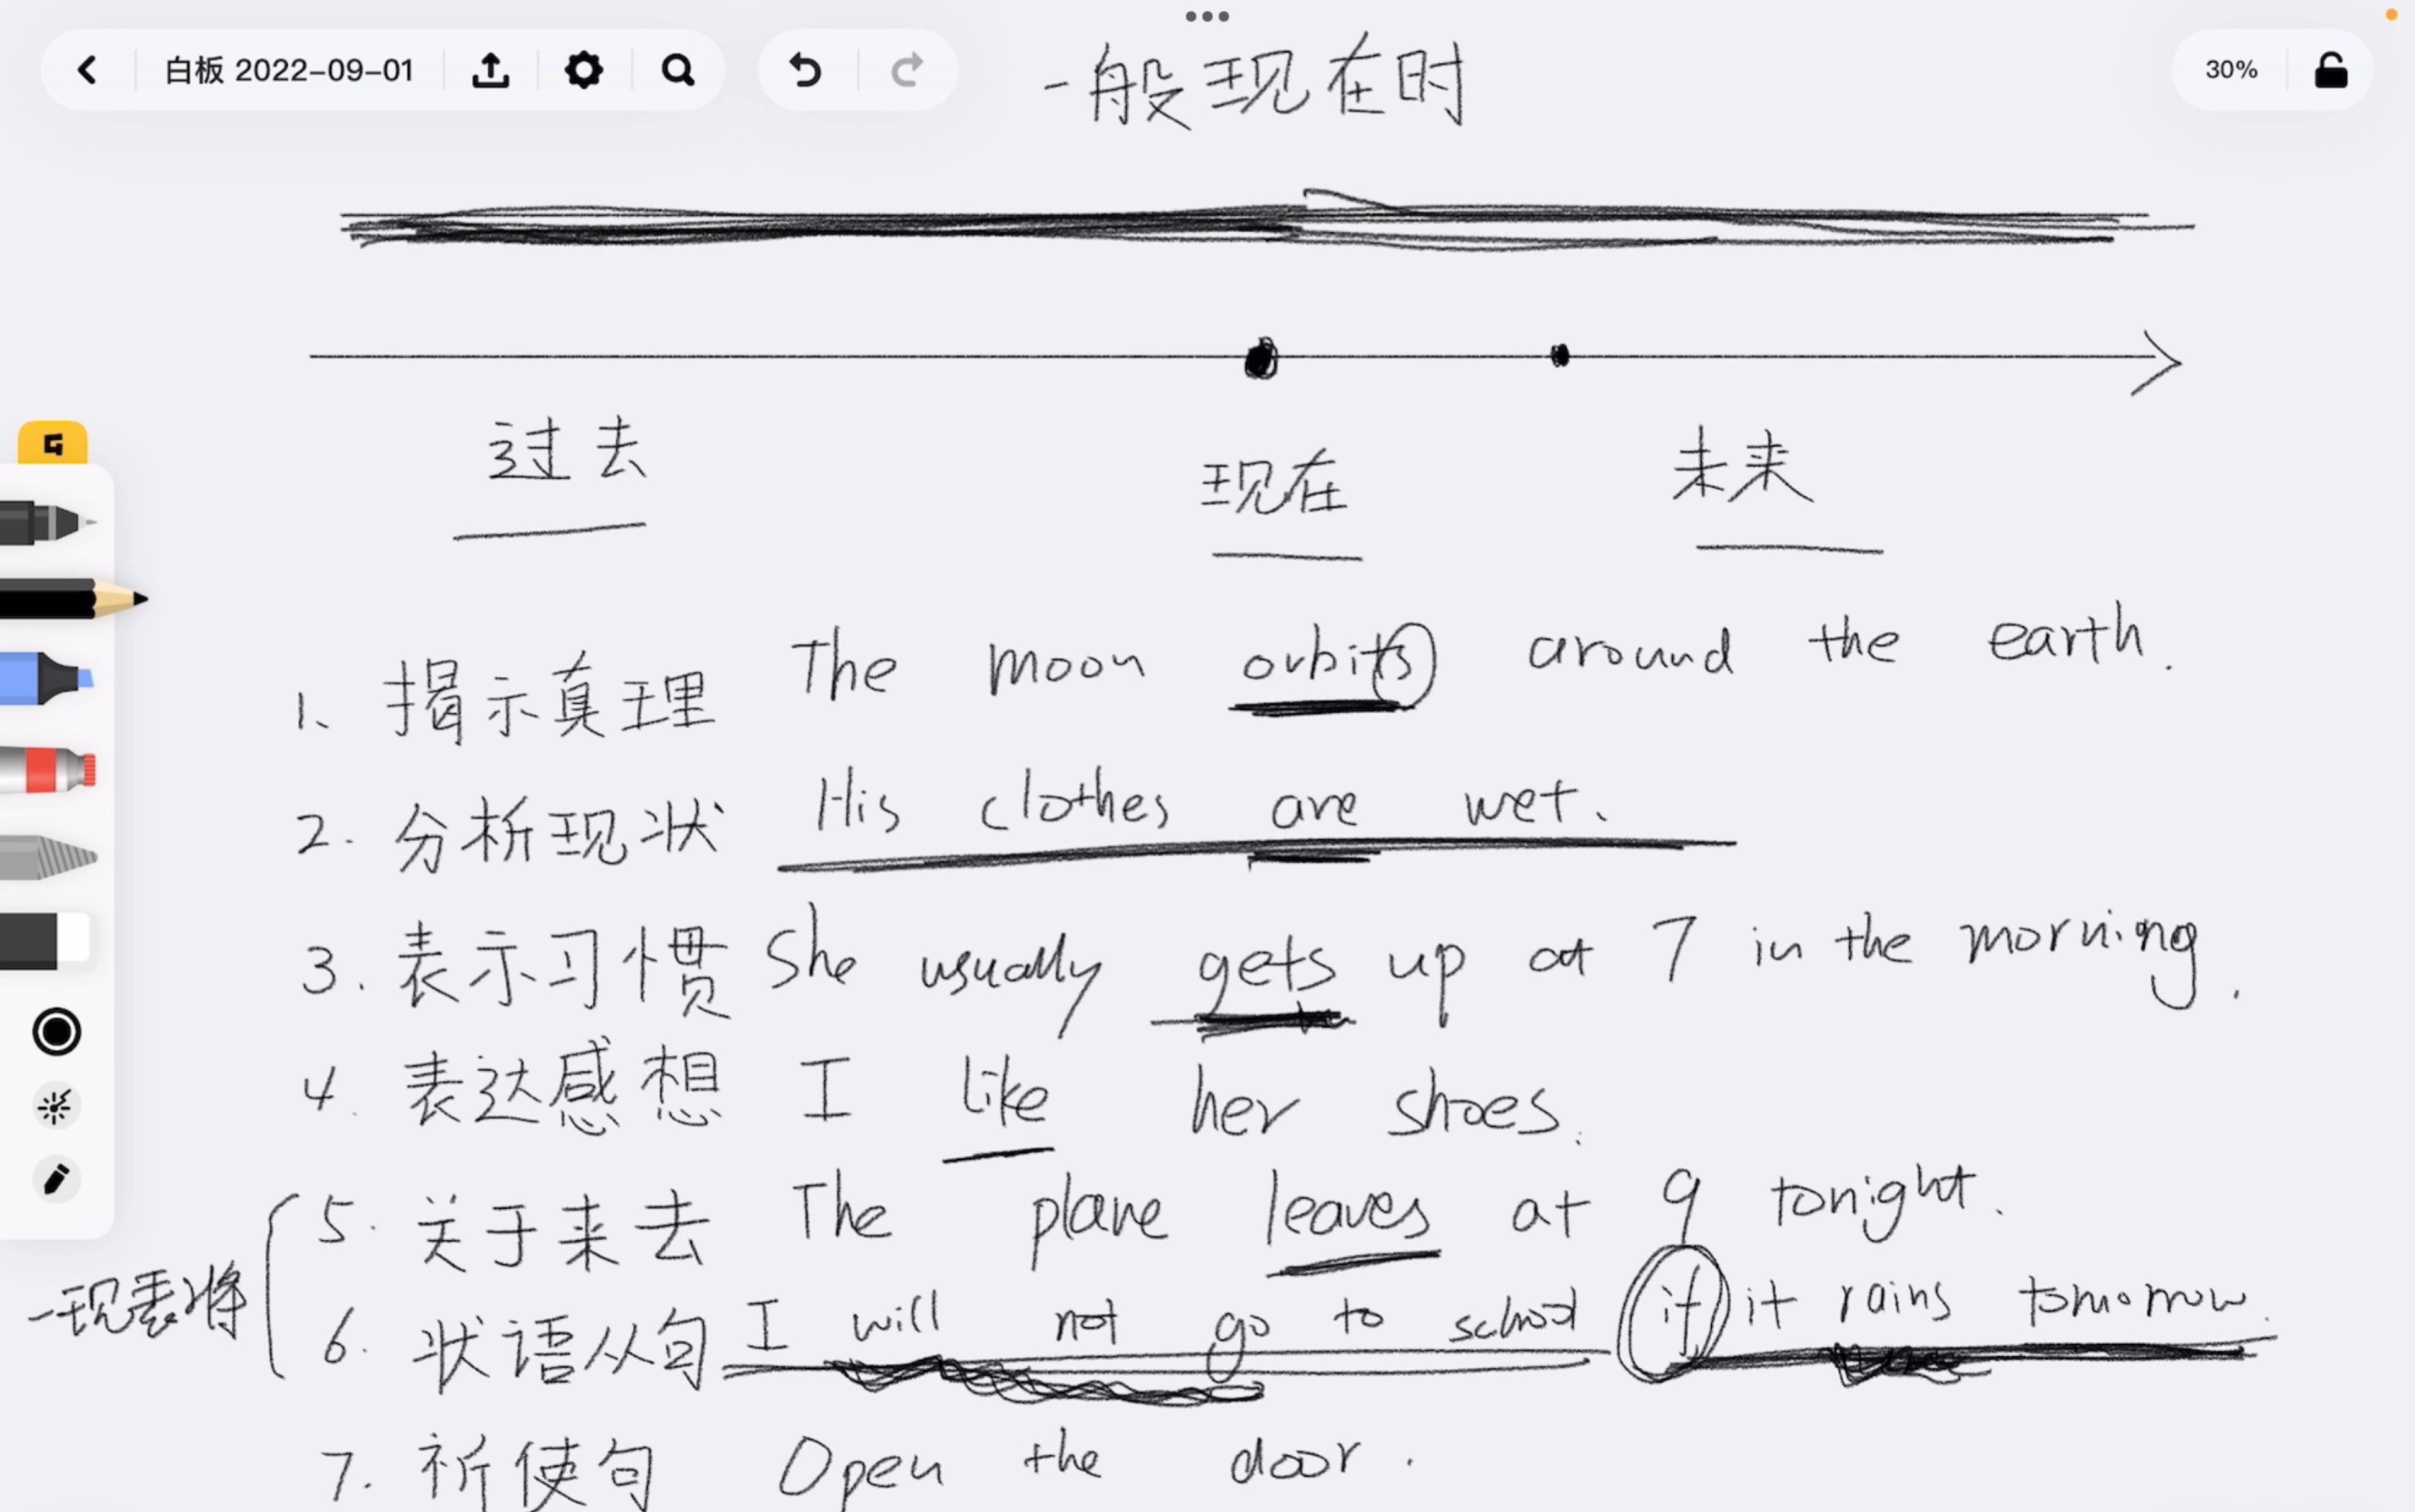 白板 2022-09-01
30%
一般现在时
过去 现在 未来
1、揭示真理 The moon orbits around the earth.
2. 分析现状 His clothes are wet.
3. 表示习惯 She usually gets up at 7 in the morning.
4. 表达感想 I like her shoes.
5. 关于来去 The plane leaves at 9 tonight.
一现表将
6. 状语从句 I will not go to school if it rains tomorrow.
7. 祈使句 Open the door.